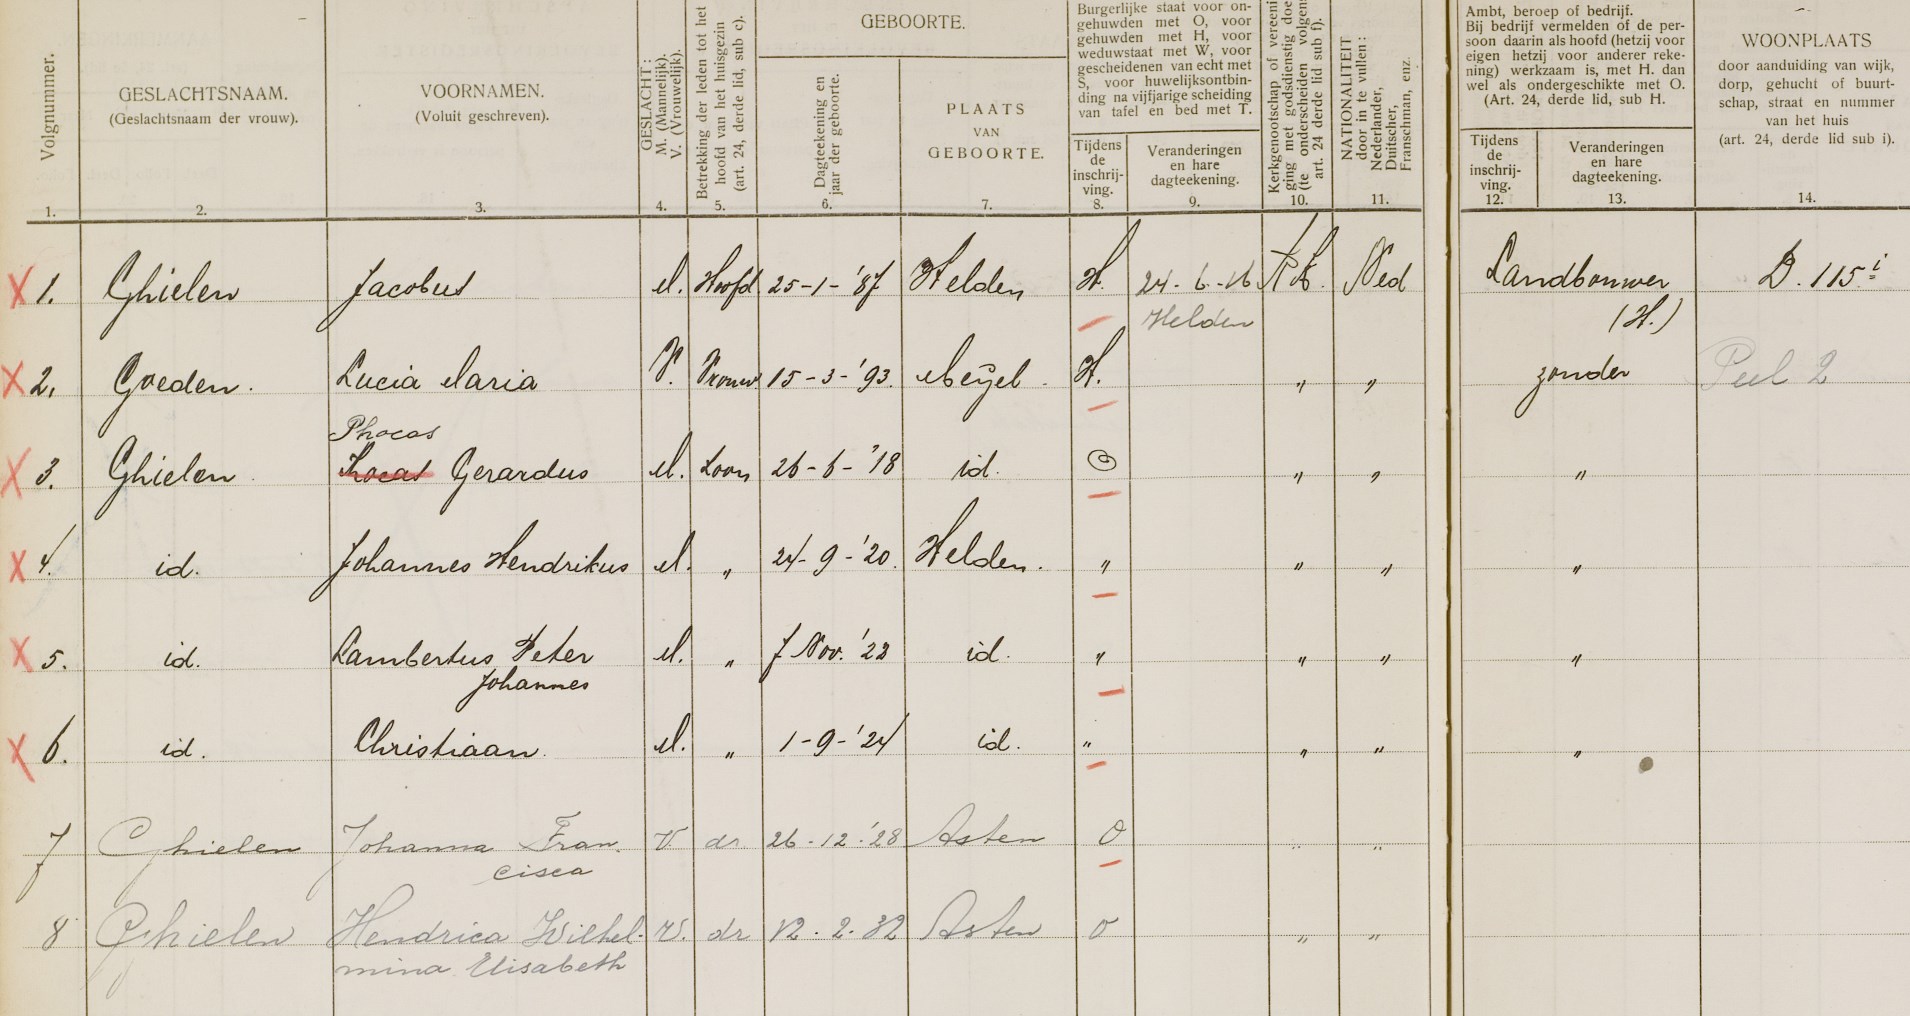 Volgnummer.
1.
GESLACHTSNAAM.
(Geslachtsnaam der vrouw).
2.
VOORNAMEN.
(Voluit geschreven).
3.
GESLACHT:
M. (Mannelijk).
V. (Vrouwelijk).
4.
Betrekking der leden tot het
hoofd van het huisgezin
(art. 24, derde lid, sub c).
5.
GEBOORTE.
Dagteekening en
jaar der geboorte.
6.
PLAATS
VAN
GEBOORTE.
7.
Burgerlijke staat voor on-
gehuwden met O, voor
gehuwden met H, voor
weduwstaat met W, voor
gescheidenen van echt met
S, voor huwelijksontbin-
ding na vijfjarige scheiding
van tafel en bed met T.
Tijdens
de
inschrij-
ving.
8.
Veranderingen
en hare
dagteekening.
9.
Kerkgenootschap of vereeni-
ging met godsdienstig doel
(te onderscheiden volgens
art. 24 derde lid sub f).
10.
NATIONALITEIT
door in te vullen:
Nederlander,
Duitscher,
Franschman, enz.
11.
Ambt, beroep of bedrijf.
Bij bedrijf vermelden of de per-
soon daarin als hoofd (hetzij voor
eigen hetzij voor anderer reke-
ning) werkzaam is, met H. dan
wel als ondergeschikte met O.
(Art. 24, derde lid, sub H.
Tijdens
de
inschrij-
ving.
12.
Veranderingen
en hare
dagteekening.
13.
WOONPLAATS
door aanduiding van wijk,
dorp, gehucht of buurt-
schap, straat en nummer
van het huis
(art. 24, derde lid sub i).
14.
X 1. Ghielen Jacobus M. Hoofd 25-1-'87 Helden H. 24-6-16 R.K. Ned Landbouwer D. 115 i
Helden (H.)
X 2. Goeden. Lucia Maria V. Vrouw 15-3-'93. Meijel. H. " " zonder Peel 2
Phocas
X 3. Ghielen. Gerardus M. Zoon 26-6-'18 id. O " " "
X 4. id. Johannes Hendrikus M. " 24-9-'20. Helden. " " " "
X 5. id. Lambertus Peter M. " 7 Nov. '22 id. " " " "
Johannes
X 6. id. Christiaan. M. " 1-9-'24 id. " " " "
7 Ghielen Johanna Fran- V. dr. 26-12-'28 Asten O " "
cisca
8 Ghielen Hendrica Wilhel- V. dr 12.2.32 Asten O " "
mina Elisabeth